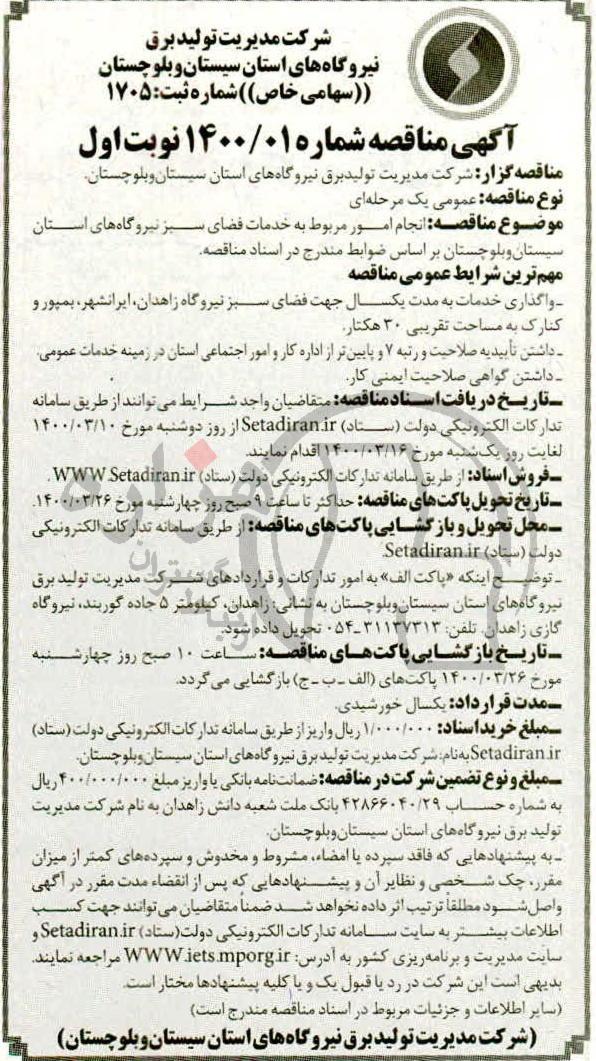 شرکت مدیریت تولید برق
نیروگاه‌های استان سیستان و بلوچستان
((سهامی خاص)) شماره ثبت: ۱۷۰۵
آگهی مناقصه شماره ۱۴۰۰/۰۱ نوبت اول
مناقصه‌گزار: شرکت مدیریت تولید برق نیروگاه‌های استان سیستان‌وبلوچستان.
نوع مناقصه: عمومی یک مرحله‌ای
موضوع مناقصه: انجام امور مربوط به خدمات فضای سبز نیروگاه‌های استان
سیستان‌وبلوچستان بر اساس ضوابط مندرج در اسناد مناقصه.
مهم‌ترین شرایط عمومی مناقصه
ـ واگذاری خدمات به مدت یکسال جهت فضای سبز نیروگاه زاهدان، ایرانشهر، بمپور و
کنارک به مساحت تقریبی ۳۰ هکتار.
ـ داشتن تأییدیه صلاحیت و رتبه ۷ و پایین‌تر از اداره کار و امور اجتماعی استان در زمینه خدمات عمومی.
ـ داشتن گواهی صلاحیت ایمنی کار.
ـ تاریخ دریافت اسناد مناقصه: متقاضیان واجد شرایط می‌توانند از طریق سامانه
تدارکات الکترونیکی دولت (ستاد) Setadiran.ir از روز دوشنبه مورخ ۱۴۰۰/۰۳/۱۰
لغایت روز یک‌شنبه مورخ ۱۴۰۰/۰۳/۱۶ اقدام نمایند.
ـ فروش اسناد: از طریق سامانه تدارکات الکترونیکی دولت (ستاد) WWW.Setadiran.ir.
ـ تاریخ تحویل پاکت‌های مناقصه: حداکثر تا ساعت ۹ صبح روز چهارشنبه مورخ ۱۴۰۰/۰۳/۲۶.
ـ محل تحویل و بازگشایی پاکت‌های مناقصه: از طریق سامانه تدارکات الکترونیکی
دولت (ستاد) Setadiran.ir.
ـ توضیح اینکه «پاکت الف» به امور تدارکات و قراردادهای شرکت مدیریت تولید برق
نیروگاه‌های استان سیستان‌وبلوچستان به نشانی: زاهدان، کیلومتر ۵ جاده گوربند، نیروگاه
گازی زاهدان. تلفن: ۳۱۱۳۷۳۱۳-۰۵۴ تحویل داده شود.
ـ تاریخ بازگشایی پاکت‌های مناقصه: ساعت ۱۰ صبح روز چهارشنبه
مورخ ۱۴۰۰/۰۳/۲۶ پاکت‌های (الف-ب-ج) بازگشایی می‌گردد.
ـ مدت قرارداد: یکسال خورشیدی.
ـ مبلغ خرید اسناد: ۱/۰۰۰/۰۰۰ ریال واریز از طریق سامانه تدارکات الکترونیکی دولت (ستاد)
Setadiran.ir به نام: شرکت مدیریت تولید برق نیروگاه‌های استان سیستان‌وبلوچستان.
ـ مبلغ و نوع تضمین شرکت در مناقصه: ضمانت‌نامه بانکی یا واریز مبلغ ۴۰۰/۰۰۰/۰۰۰ ریال
به شماره حساب ۴۲۸۶۶۰۴۰/۲۹ بانک ملت شعبه دانش زاهدان به نام شرکت مدیریت
تولید برق نیروگاه‌های استان سیستان‌وبلوچستان.
ـ به پیشنهادهایی که فاقد سپرده یا امضاء، مشروط و مخدوش و سپرده‌های کمتر از میزان
مقرر، چک شخصی و نظایر آن و پیشنهادهایی که پس از انقضاء مدت مقرر در آگهی
واصل شود مطلقاً ترتیب اثر داده نخواهد شد ضمناً متقاضیان می‌توانند جهت کسب
اطلاعات بیشتر به سایت سامانه تدارکات الکترونیکی دولت (ستاد) Setadiran.ir و
سایت مدیریت و برنامه‌ریزی کشور به آدرس: WWW.iets.mporg.ir مراجعه نمایند.
بدیهی است این شرکت در رد یا قبول یک و یا کلیه پیشنهادها مختار است.
(سایر اطلاعات و جزئیات مربوط در اسناد مناقصه مندرج است)
(شرکت مدیریت تولید برق نیروگاه‌های استان سیستان و بلوچستان)